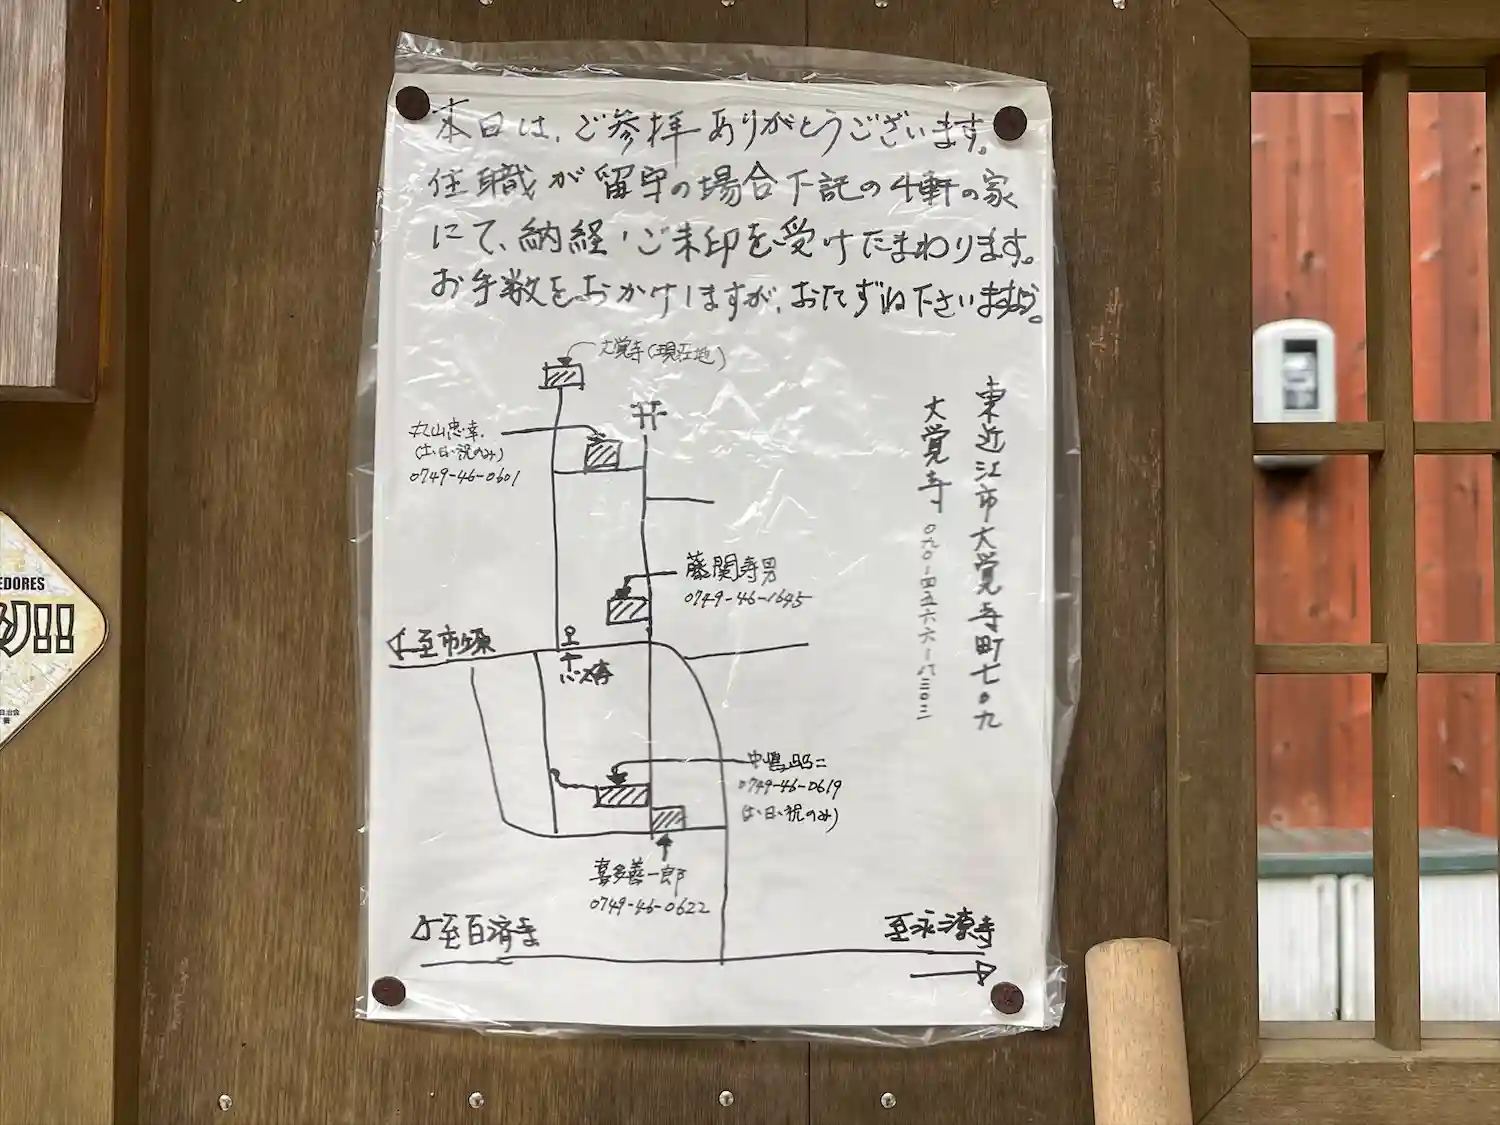 本日は、ご参拝ありがとうございます。
住職が留守の場合下記の4軒の家
にて、納経・ご朱印を受けたまわります。
お手数をおかけしますが、おたずね下さいますよう。
大覚寺(現在地)
丸山忠幸
(土・日・祝のみ)
0749-46-0601
藤関寿男
0749-46-1645
至市原
バス停
中嶋昭二
0749-46-0619
(土・日・祝のみ)
喜多善一郎
0749-46-0622
至百済寺
至永源寺
東近江市大覚寺町七〇九
大覚寺 〇九〇-四五六六-八三〇三
EDORES
り!!
自治会